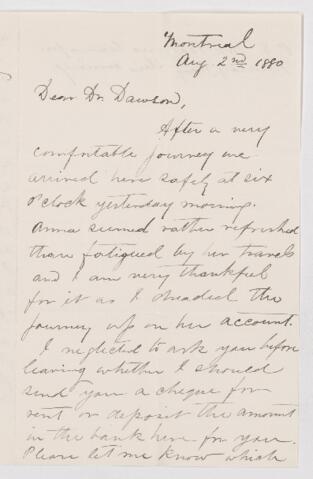 Montreal
Aug 2nd 1880
Dear Dr. Dawson,
After a very
comfortable journey we
arrived here safely at six
o'clock yesterday morning.
Anna seemed rather refreshed
than fatigued by her travels
and I am very thankful
for it as I dreaded the
journey up on her account.
I neglected to ask you before
leaving whether I should
send you a cheque for
rent or deposit the amount
in the bank here for you.
Please let me know which